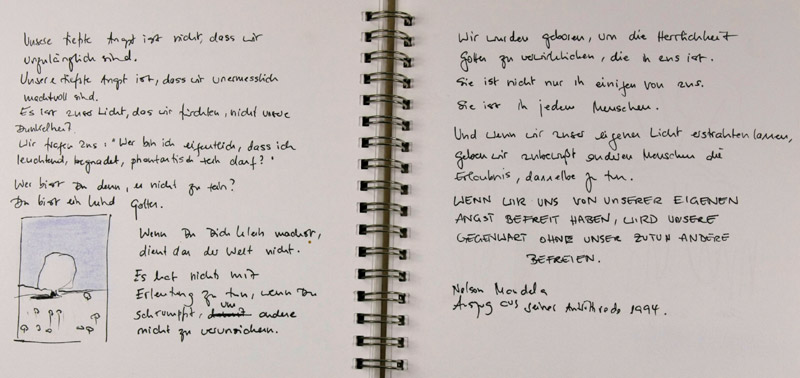 Unsere tiefste Angst ist nicht, dass wir
unzulänglich sind.
Unsere tiefste Angst ist, dass wir unermesslich
machtvoll sind.
Es ist unser Licht, das wir fürchten, nicht unsere
Dunkelheit.
Wir fragen uns: "Wer bin ich eigentlich, dass ich
leuchtend, begnadet, phantastisch sein darf?"
Wer bist Du denn, es nicht zu sein?
Du bist ein Kind Gottes.
Wenn Du Dich klein machst,
dient das der Welt nicht.
Es hat nichts mit
Erleuchtung zu tun, wenn Du
schrumpfst, um andere
nicht zu verunsichern.
Wir wurden geboren, um die Herrlichkeit
Gottes zu verwirklichen, die in uns ist.
Sie ist nicht nur in einigen von uns.
Sie ist in jedem Menschen.
Und wenn wir unser eigenes Licht erstrahlen lassen,
geben wir unbewußt anderen Menschen die
Erlaubnis, dasselbe zu tun.
WENN WIR UNS VON UNSERER EIGENEN
ANGST BEFREIT HABEN, WIRD UNSERE
GEGENWART OHNE UNSER ZUTUN ANDERE
BEFREIEN.
Nelson Mandela
Auszug aus seiner Antrittsrede 1994.